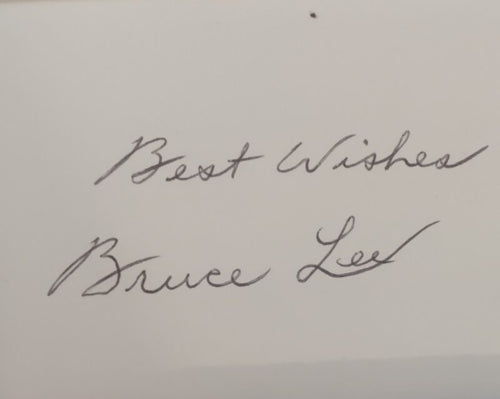 Best Wishes
Bruce Lee